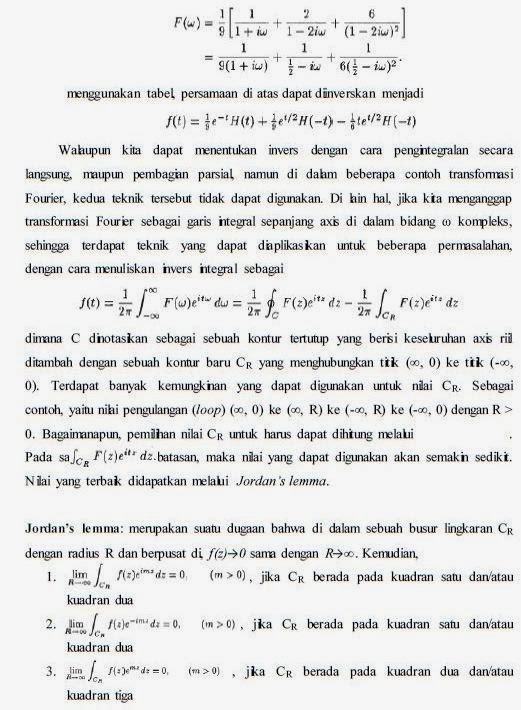 F(ω) = 1/9 [ 1/(1 + iω) + 2/(1 − 2iω) + 6/(1 − 2iω)² ]
= 1/(9(1 + iω)) + 1/(½ − iω) + 1/(6(½ − iω)²).
menggunakan tabel, persamaan di atas dapat diinverskan menjadi
f(t) = ⅑e^{−t}H(t) + ⅑e^{t/2}H(−t) − ⅙te^{t/2}H(−t)
Walaupun kita dapat menentukan invers dengan cara pengintegralan secara
langsung, maupun pembagian parsial, namun di dalam beberapa contoh transformasi
Fourier, kedua teknik tersebut tidak dapat digunakan. Di lain hal, jika kita menganggap
transformasi Fourier sebagai garis integral sepanjang axis di dalam bidang ω kompleks,
sehingga terdapat teknik yang dapat diaplikasikan untuk beberapa permasalahan,
dengan cara menuliskan invers integral sebagai
f(t) = 1/2π ∫_{−∞}^{∞} F(ω)e^{itω} dω = 1/2π ∮_C F(z)e^{itz} dz − 1/2π ∫_{C_R} F(z)e^{itz} dz
dimana C dinotasikan sebagai sebuah kontur tertutup yang berisi keseluruhan axis riil
ditambah dengan sebuah kontur baru C_R yang menghubungkan titik (∞, 0) ke titik (-∞,
0). Terdapat banyak kemungkinan yang dapat digunakan untuk nilai C_R. Sebagai
contoh, yaitu nilai pengulangan (loop) (∞, 0) ke (∞, R) ke (-∞, R) ke (-∞, 0) dengan R >
0. Bagaimanapun, pemilihan nilai C_R untuk harus dapat dihitung melalui .
Pada sa∫_{C_R} F(z)e^{itz} dz.batasan, maka nilai yang dapat digunakan akan semakin sedikit.
Nilai yang terbaik didapatkan melalui Jordan's lemma.
Jordan's lemma: merupakan suatu dugaan bahwa di dalam sebuah busur lingkaran C_R
dengan radius R dan berpusat di, f(z)→0 sama dengan R→∞. Kemudian,
1. lim_{R→∞} ∫_{C_R} f(z)e^{imz} dz = 0, (m > 0), jika C_R berada pada kuadran satu dan/atau
kuadran dua
2. lim_{R→∞} ∫_{C_R} f(z)e^{−imz} dz = 0, (m > 0), jika C_R berada pada kuadran satu dan/atau
kuadran dua
3. lim_{R→∞} ∫_{C_R} f(z)e^{mz} dz = 0, (m > 0) , jika C_R berada pada kuadran dua dan/atau
kuadran tiga